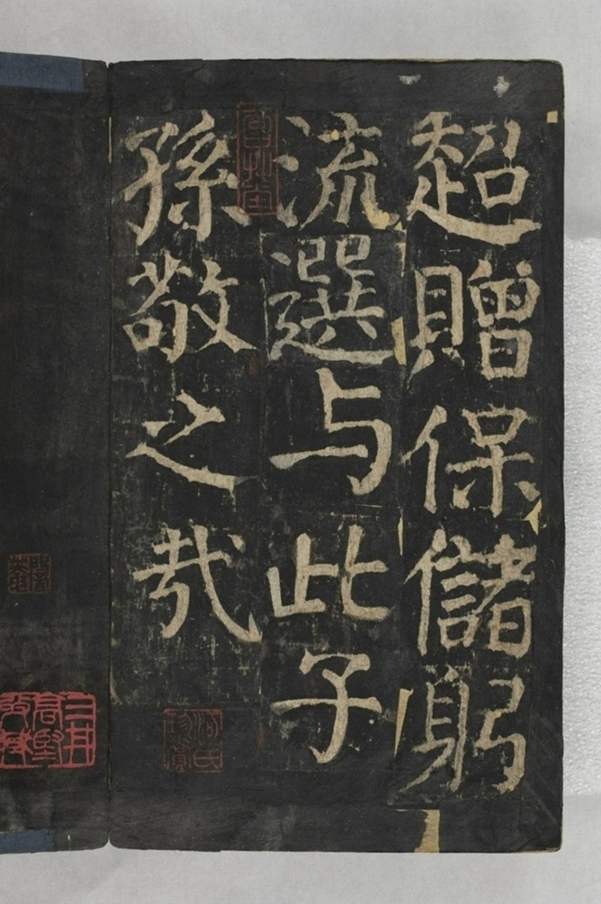 超贈保儲躬
流選与此子
孫敬之哉